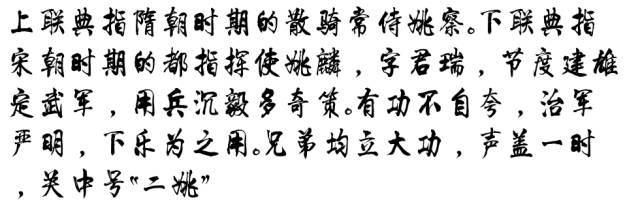 上联典指隋朝时期的散骑常侍姚察。下联典指
宋朝时期的都指挥使姚麟，字君瑞，节度建雄
定武军，用兵沉毅多奇策。有功不自夸，治军
严明，下乐为之用。兄弟均立大功，声盖一时
，关中号“二姚”